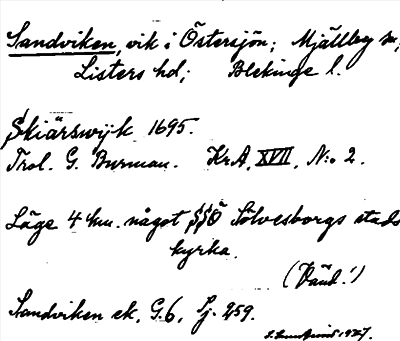 Sandviken, vik i Östersjön; Mjällby sn;
Listers hd; Blekinge l.
Skiärswijk 1695.
Trol. G. Burman. Kr.A. XVII, N:o 2.
Läge 4 km. något SSÖ Sölvesborgs stads
kyrka.
(Känd!)
Sandviken ek. G.6, Sj. 259.
1927.